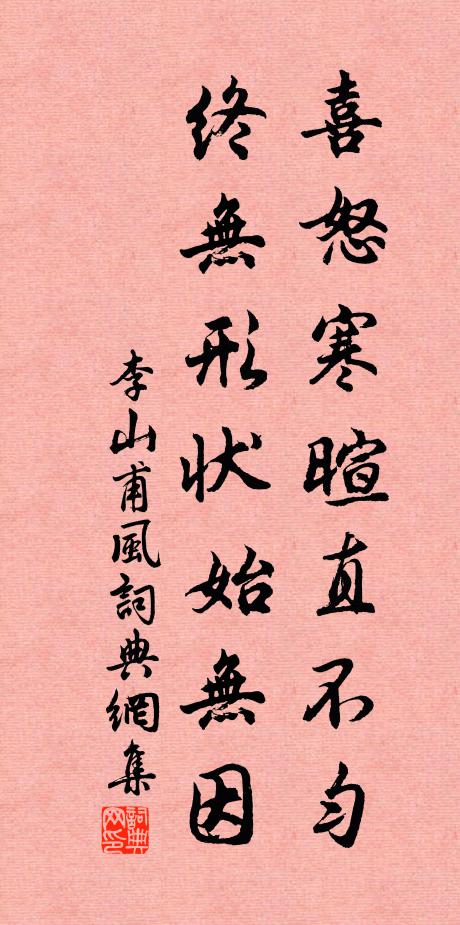 喜怒寒暄直不匀
終無形狀始無因
李山甫風詞典網集
詞典网印